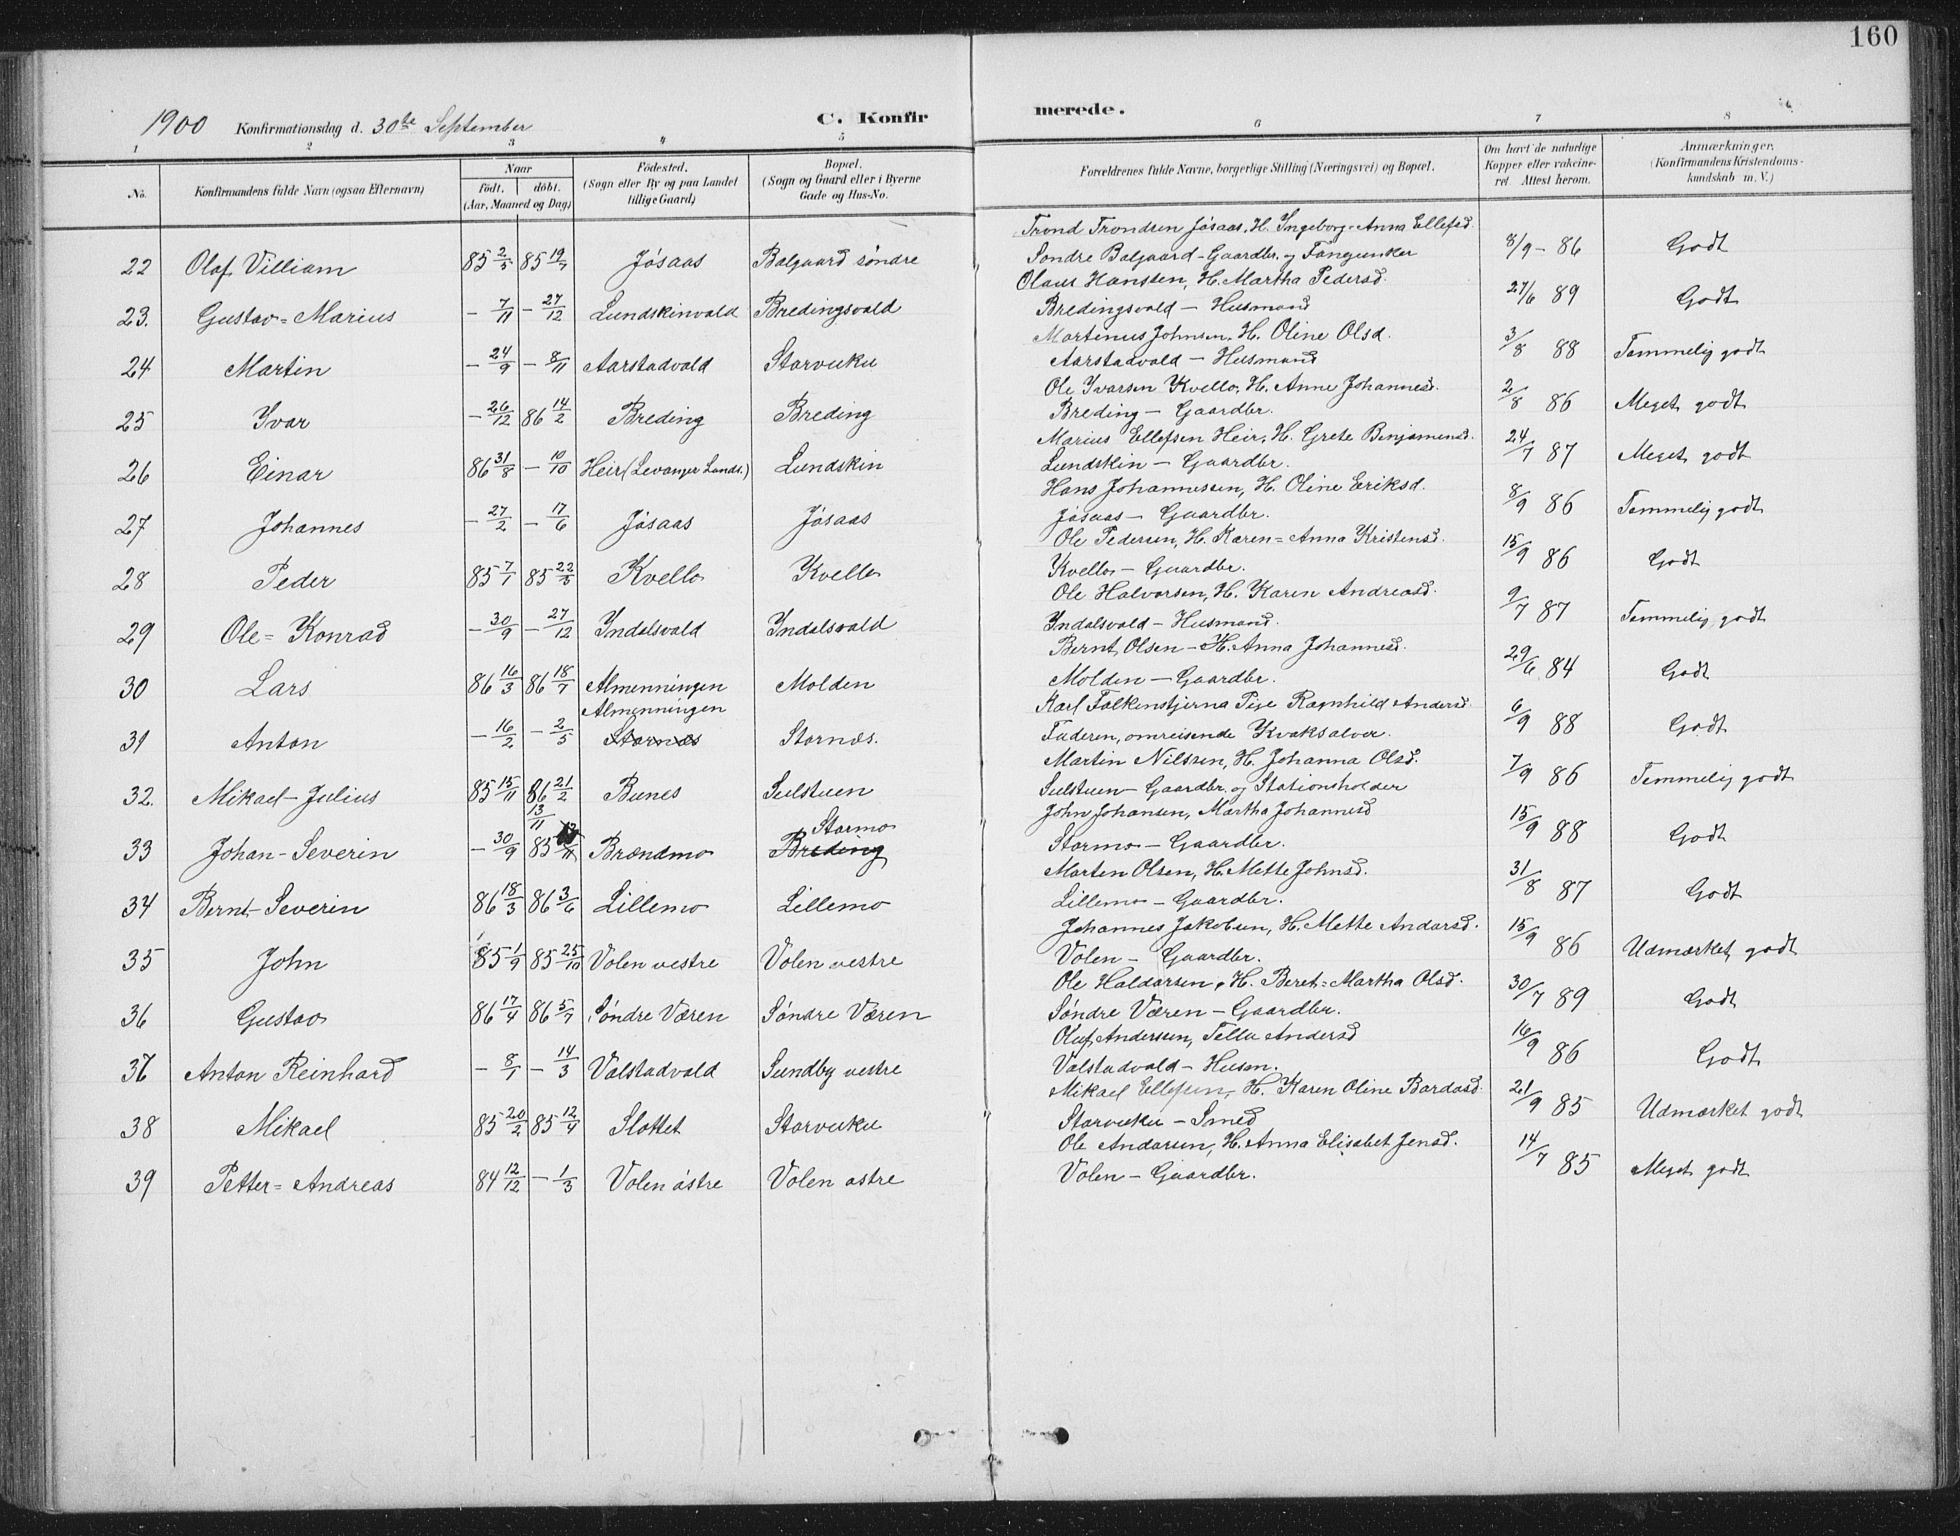 160
1900 Konfirmationsdag d. 30te September
C. Konfirmerede.
1 2 3 4 5 6 7 8
No. Konfirmandens fulde Navn (ogsaa Efternavn) Naar født. døbt. (Aar, Maaned og Dag) Fødested. (Sogn eller By og paa Landet tillige Gaard) Bopæl. (Sogn og Gaard eller i Byerne Gade og Hus-No. Forældrenes fulde Navne, borgerlige Stilling (Næringsvei) og Bopæl. Om havt de naturlige Kopper eller vakcineret. Attest herom. Anmærkninger. (Konfirmandens Kristendomskundskab m. V.)
Trond Trondsen Jøsaas, H. Ingeborg-Anna Ellefsd
22 Olaf Villiam 85 2/5 85 19/7 Jøsaas Balgaard søndre Søndre Balgaard - Gaardbr. og 8/9 - 86 Godt
Olaus Hanssen, H. Martha Pedersd
23. Gustav=Marius - 7/11 - 27/12 Lundskinvald Bredingsvald Bredingsvald - Husmand 27/6 89 Godt
Martinus Johnsen, H. Oline Olsd.
24 Martin - 24/9 - 8/11 Aarstadvald Storvuku Aarstadvald - Husmand 3/8 88 Temmelig godt
Ole Ivarsen Kvello, H. Anne Johannesd.
25 Ivar - 26/12 86 14/2 Breding Breding Breding - Gaardbr. 2/8 86 Meget godt
Marius Ellefsen Heir, H. Grete Benjaminsd.
26 Einar 86 31/8 - 10/10 Heir (Levanger Lands.) Lundskin Lundskin - Gaardbr. 24/7 87 Meget godt
Hans Johannessen, H. Oline Eriksd.
27 Johannes - 27/2 - 17/6 Jøsaas Jøsaas Jøsaas - Gaardbr. 8/9 86 Temmelig godt
Ole Pedersen, H. Karen=Anna Kristensd.
28 Peder 85 7/1 85 22/3 Kvello Kvello Kvello - Gaardbr. 15/9 86 Godt
Ole Halvorsen, H. Karen Andreasd.
29 Ole=Konrad - 30/9 - 27/12 Indalsvald Indalsvald Indalsvald - Husmand. 9/7 87 Temmelig godt
Bernt Olsen - H. Anna Johannesd.
30 Lars 86 16/3 86 18/7 Almenningen Molden Molden - Gaardbr. 29/6 84 Godt
Almenningen Karl Falkenstjerna Pige Ragnhild Andersd.
31 Anton - 16/2 - 2/5 Stornæs Stornæs. Faderen, omreisende Kvaksalver. 6/9 88 Godt
Martin Nilssen, H. Johanna Olsd.
32. Mikael-Julius 85 15/11 86 21/2 Bunes Sulstuen Sulstuen - Gaardbr. og Stationsholder 7/9 86 Temmelig godt
13/11 Stormo John Johansen, Martha Johannesd
33 Johan-Severin - 30/9 85 Brændmo Breding Stormo - Gaardbr. 15/9 88 Godt
Morten Olsen, H. Mette Johnsd.
34 Bernt-Severin 86 18/3 86 3/6 Lillemo Lillemo Lillemo - Gaardbr. 31/8 87 Godt
Johannes Jakobsen, H. Mette Andersd.
35 John 85 1/9 85 25/10 Volen vestre Volen vestre Volen - Gaardbr. 15/9 86 Udmærket godt
Ole Haldorsen, H. Beret=Martha Olsd.
36 Gustav 86 17/4 86 5/7 Søndre Væren Søndre Væren Søndre Væren - Gaardbr. 30/7 89 Godt
Oluf Andersen, Andersd
37 Anton Reinhard - 8/1 - 14/3 Valstadvald Sundby vestre Valstadvald - Husm. 16/9 86 Godt
Mikael Ellefsen, H. Karen Oline Bardosd.
38 Mikael 85 20/2 85 12/4 Slottet Storvuku Storvuku - Smed 21/9 85 Udmærket godt
Ole Andersen, H. Anna Elisabet Jensd.
39 Petter=Andreas 84 12/12 - 1/3 Volen østre Volen østre Volen - Gaardbr. 14/7 85 Meget godt